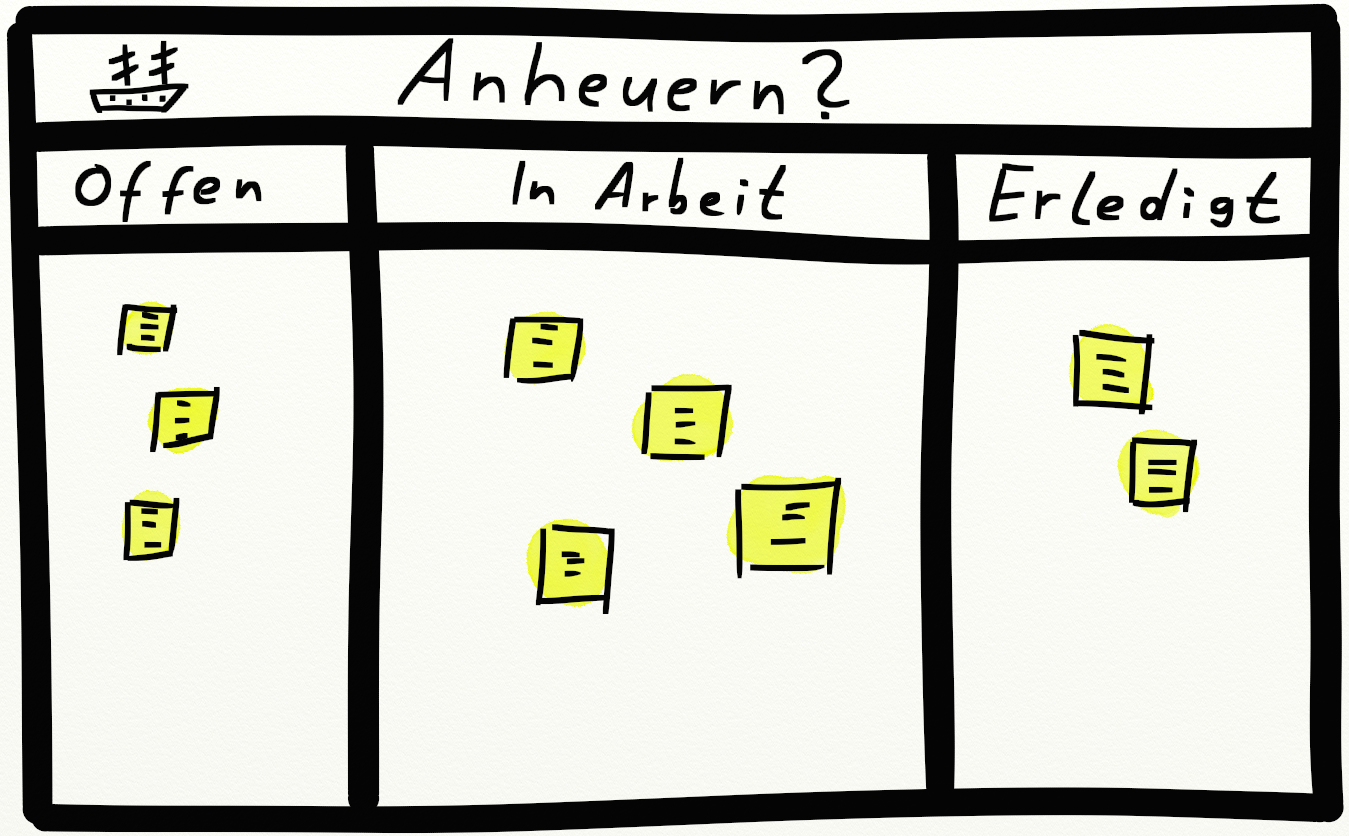 Anheuern?
Offen
In Arbeit
Erledigt